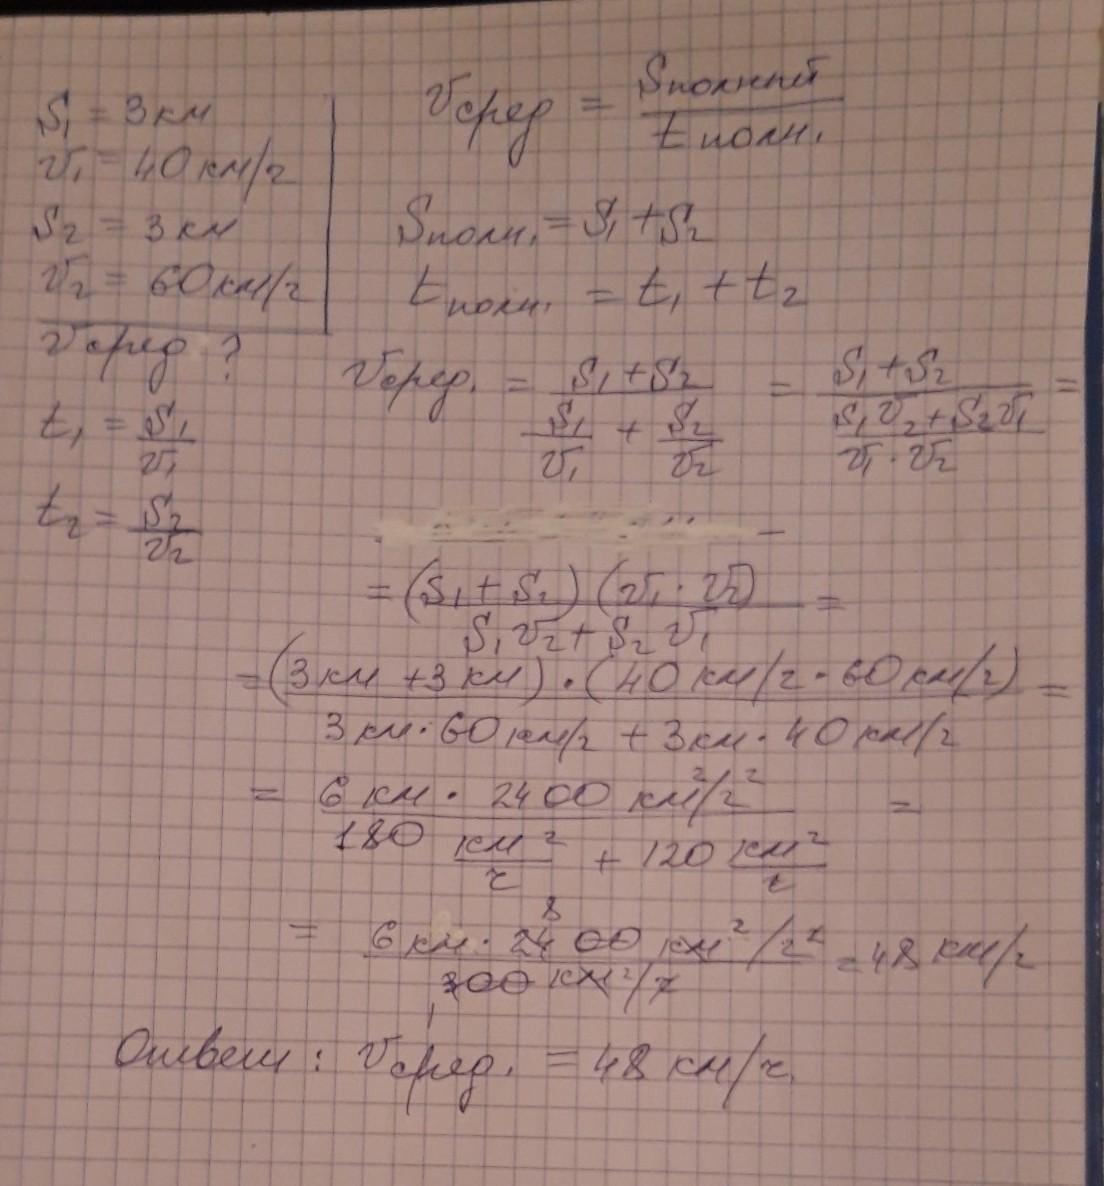 S₁ = 3 км
v₁ = 40 км/ч
S₂ = 3 км
v₂ = 60 км/ч
vсред ?
t₁ = S₁/v₁
t₂ = S₂/v₂
vсред = Sполный/tполн.
Sполн. = S₁ + S₂
tполн. = t₁ + t₂
vсред. = (S₁ + S₂)/(S₁/v₁ + S₂/v₂) = (S₁ + S₂)/((S₁v₂ + S₂v₁)/(v₁ · v₂)) =
= (S₁ + S₂)(v₁ · v₂)/(S₁v₂ + S₂v₁) =
= (3 км + 3 км) · (40 км/ч · 60 км/ч)/(3 км · 60 км/ч + 3 км · 40 км/ч) =
= 6 км · 2400 км²/ч²/(180 км²/ч + 120 км²/ч) =
= 6 км · 2400 км²/ч²/(300 км²/ч) = 48 км/ч
Ответ : vсред. = 48 км/ч.